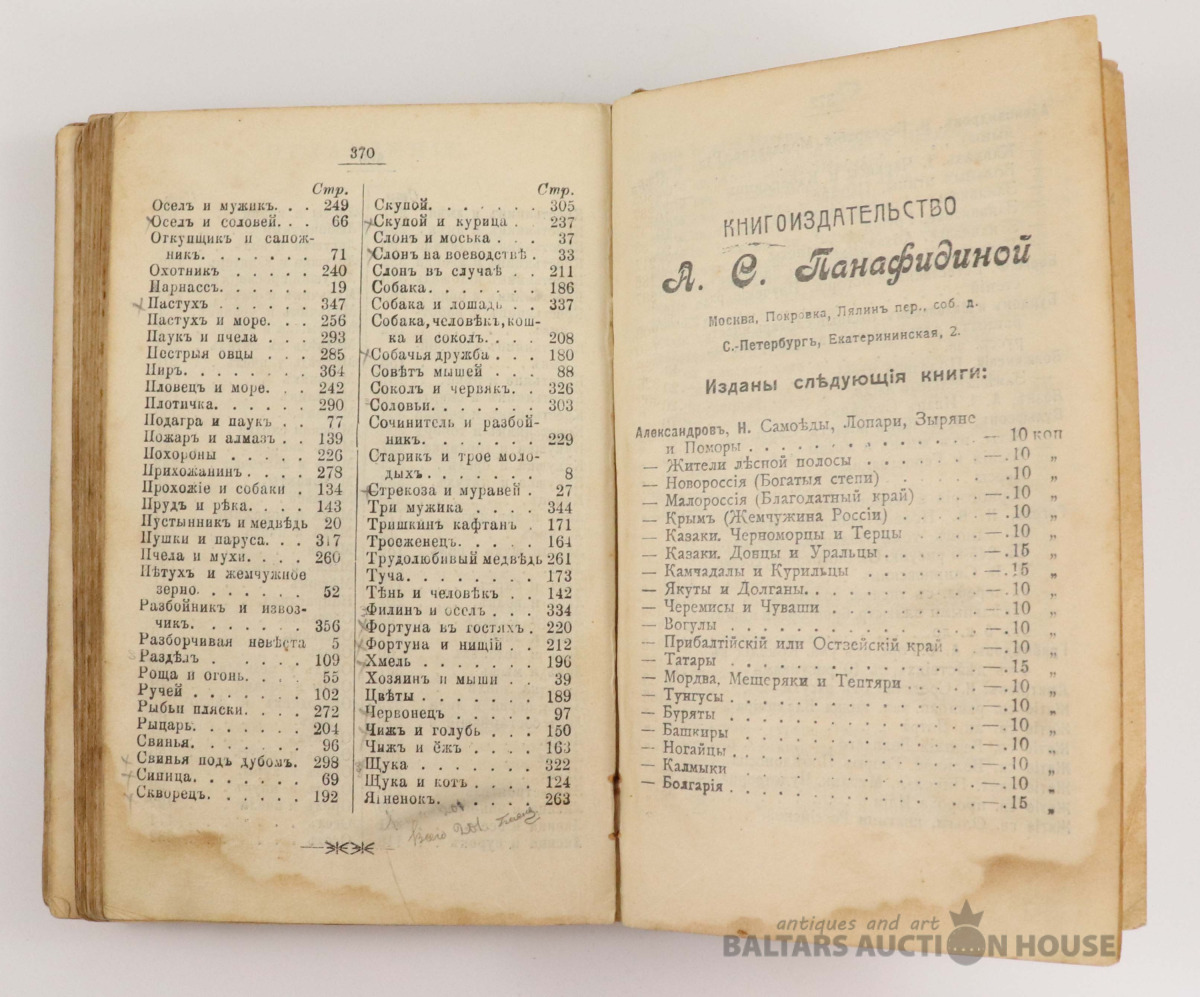 370
Стр.
Оселъ и мужикъ. . . 249
Оселъ и соловей. . . 66
Откупщикъ и сапож-
никъ. . . . . . . 71
Охотникъ . . . . . 240
Парнассъ. . . . . . 19
Пастухъ . . . . . . 347
Пастухъ и море. . . 256
Паукъ и пчела . . . 293
Пестрыя овцы . . . 285
Пиръ. . . . . . . . 364
Пловецъ и море. . . 242
Плотичка. . . . . . 290
Подагра и паукъ . . 77
Пожаръ и алмазъ . . 139
Похороны . . . . . 226
Прихожанинъ. . . . 278
Прохожіе и собаки . 134
Прудъ и рѣка. . . . 143
Пустынникъ и медвѣдь 20
Пушки и паруса. . . 317
Пчела и мухи. . . . 260
Пѣтухъ и жемчужное
зерно. . . . . . . 52
Разбойникъ и извоз-
чикъ. . . . . . . 356
Разборчивая невѣста 5
Раздѣлъ . . . . . . 109
Роща и огонь. . . . 55
Ручей . . . . . . . 102
Рыбьи пляски. . . . 272
Рыцарь. . . . . . . 204
Свинья. . . . . . . 96
Свинья подъ дубомъ. 298
Синица. . . . . . . 69
Скворецъ. . . . . . 192
Стр.
Скупой. . . . . . . 305
Скупой и курица . 237
Слонъ и моська . . . 37
Слонъ на воеводствѣ . 33
Слонъ въ случаѣ . . 211
Собака. . . . . . . 186
Собака и лошадь . . 337
Собака, человѣкъ, кош-
ка и соколъ. . . 208
Собачья дружба . . . 180
Совѣтъ мышей . . . 88
Соколъ и червякъ. . 326
Соловьи. . . . . . . 303
Сочинитель и разбой-
никъ. . . . . . . 229
Старикъ и трое моло-
дыхъ. . . . . . . 8
Стрекоза и муравей . 27
Три мужика . . . . 344
Тришкинъ кафтанъ . 171
Троеженецъ. . . . . 164
Трудолюбивый медвѣдь 261
Туча. . . . . . . . 173
Тѣнь и человѣкъ . . 142
Филинъ и оселъ . . . 334
Фортуна въ гостяхъ . 220
Фортуна и нищій . . 212
Хмель . . . . . . . 196
Хозяинъ и мыши . . 39
Цвѣты . . . . . . . 189
Червонецъ . . . . . 97
Чижъ и голубь . . . 150
Чижъ и ёжъ . . . . 163
Щука . . . . . . . 322
Щука и котъ . . . . 124
Ягненокъ. . . . . . 263
Всего 201
КНИГОИЗДАТЕЛЬСТВО
А. С. Панафидиной
Москва, Покровка, Лялинъ пер., соб. д.
С.-Петербургъ, Екатерининская, 2.
Изданы слѣдующія книги:
Александровъ, Н. Самоѣды, Лопари, Зыряне
и Поморы . . . . . . . . . . . — 10 коп
— Жители лѣсной полосы . . . . . . —.10 „
— Новороссія (Богатыя степи) . . . .10 „
— Малороссія (Благодатный край) . . . —.10 „
— Крымъ (Жемчужина Россіи) . . . . —.10 „
— Казаки. Черноморцы и Терцы . . . —.10 „
— Казаки. Донцы и Уральцы . . . . . —.15 „
— Камчадалы и Курильцы . . . . . . —.15 „
— Якуты и Долганы. . . . . . . . . —.10 „
— Черемисы и Чуваши . . . . . . . —.10 „
— Вогулы . . . . . . . . . . . . —.10 „
— Прибалтійскій или Остзейскій край . . —.10 „
— Татары . . . . . . . . . . . . —.15 „
— Мордва, Мещеряки и Тептяри . . . . —.10 „
— Тунгусы . . . . . . . . . . . . —.10 „
— Буряты . . . . . . . . . . . . —.10 „
— Башкиры . . . . . . . . . . . . —.10 „
— Ногайцы . . . . . . . . . . . . —.10 „
— Калмыки . . . . . . . . . . . . —.10 „
— Болгарія . . . . . . . . . . . . —.15 „
antiques and art
BALTARS AUCTION HOUSE